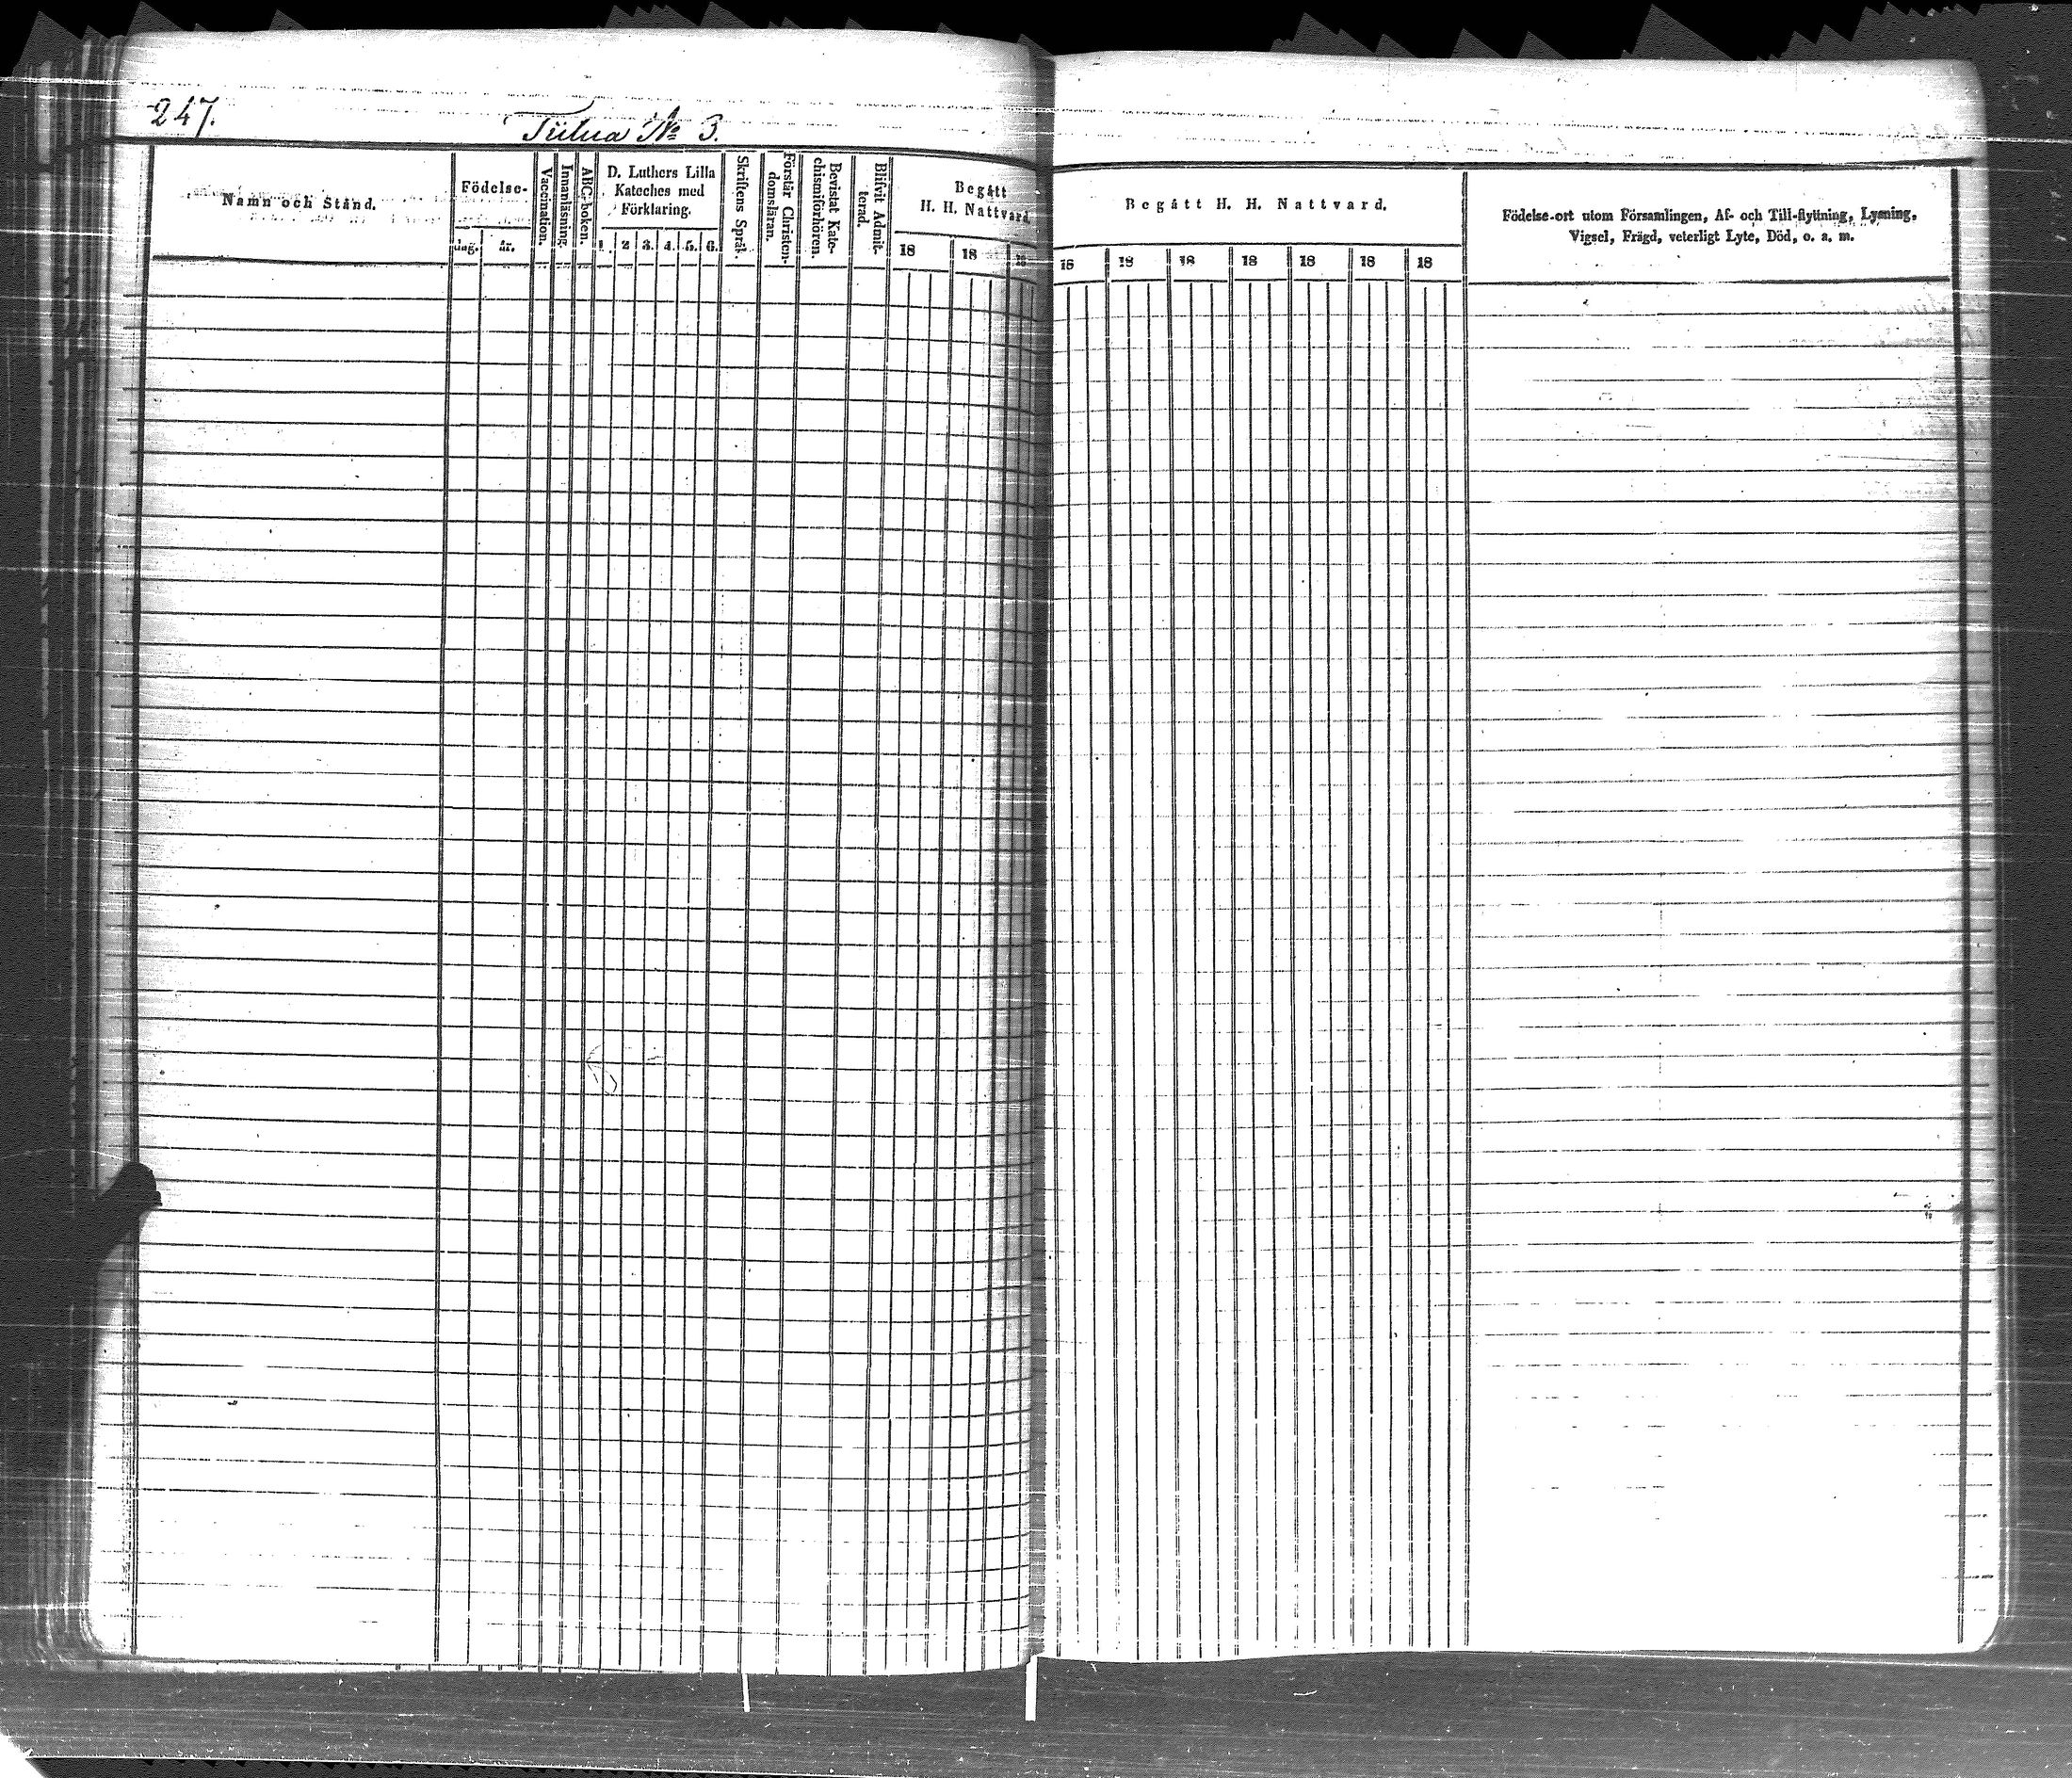 247.
Tiilua No 3.
Namn och Stånd.
Födelse-
dag.
år.
Vaccination.
Innanläsning.
ABC-boken.
D. Luthers Lilla
Kateches med
Förklaring.
1. 2 3. 4. 5. 6.
Skriftens Språk.
Förstår Christen-
domsläran.
Bevistat Kate-
chismiförhören.
Blifvit Admit-
terad.
Begått
H. H. Nattvard.
18 18 18
Begått H. H. Nattvard.
18 18 18 18 18 18 18
Födelse-ort utom Församlingen, Af- och Till-flyttning, Lysning,
Vigsel, Frägd, veterligt Lyte, Död, o. a. m.